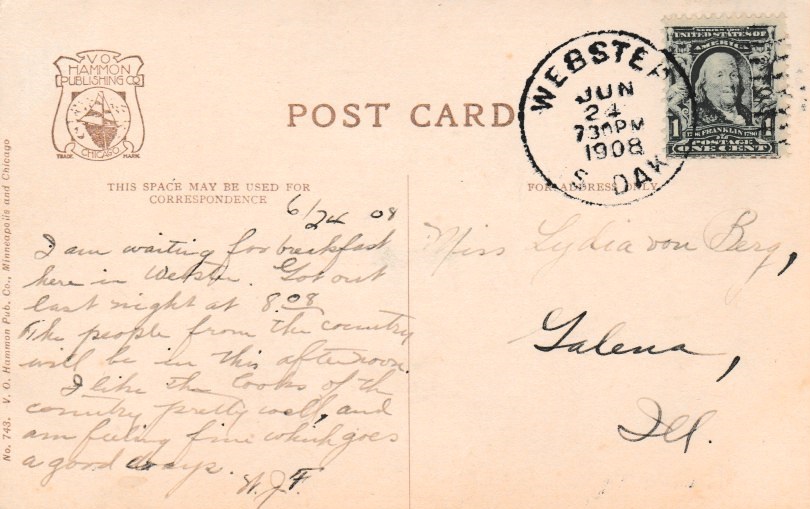 V O
HAMMON
PUBLISHING CO
TRADE CHICAGO MARK
No. 743. V. O. Hammon Pub. Co., Minneapolis and Chicago
POST CARD
THIS SPACE MAY BE USED FOR
CORRESPONDENCE
6/24 08
I am waiting for breakfast
here in Webster. Got out
last night at 8.08
The people from the country
will be in this afternoon.
I like the looks of the
country pretty well, and
am feeling fine which goes
a good ways.
W.J.F.
WEBSTER
JUN
24
730PM
1908
S. DAK
SERIES 1902
UNITED STATES OF
AMERICA
1706 FRANKLIN 1790
1 POSTAGE 1
ONE CENT
FOR ADDRESS ONLY
Miss Lydia von Berg,
Galena,
Ill.